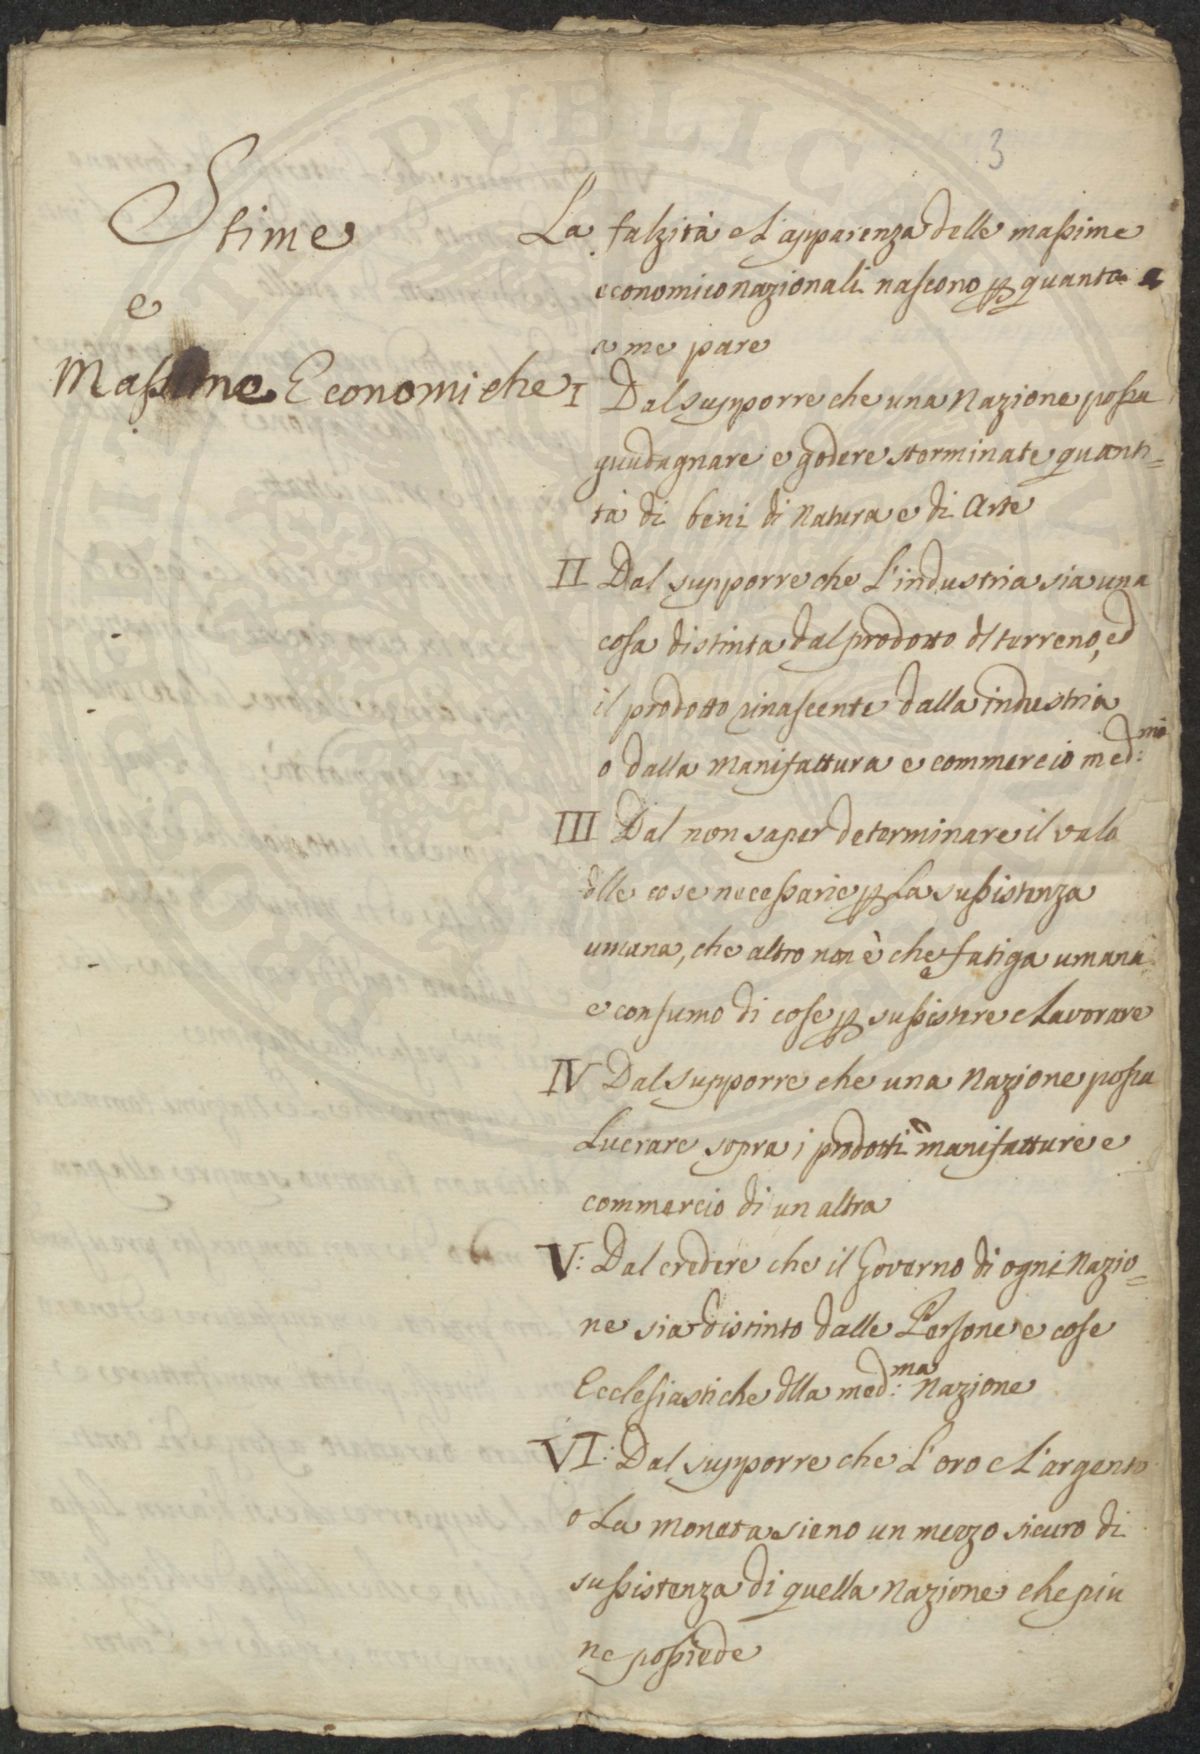 3
Stime
e
Massime Economiche
La falzità e L'apparenza delle massime
economico nazionali nascono p quanto a
a me pare
I Dal supporre che una Nazione possa
guadagnare e godere sterminate quanti=
tà di beni di Natura e di Arte
II Dal supporre che L'industria sia una
cosa distinta dal prodotto dl terreno, ed
il prodotto rinascente dalla industria
o dalla Manifattura e commercio med:mo
III Dal non saper determinare il valo
dlle cose necessarie p La sussistenza
umana, che altro non è che fatiga umana
e consumo di cose p sussistere e Lavorare
IV Dal supporre che una Nazione possa
Lucrare sopra i prodotti manifatture e
commercio di un altra
V: Dal credere che il Governo di ogni Nazio=
ne sia distinto dalle Persone e cose
Ecclesiastiche dlla med:ma Nazione
VI: Dal supporre che L'oro e L'argento
o La moneta sieno un mezzo sicuro di
sussistenza di quella Nazione che piu
ne possiede